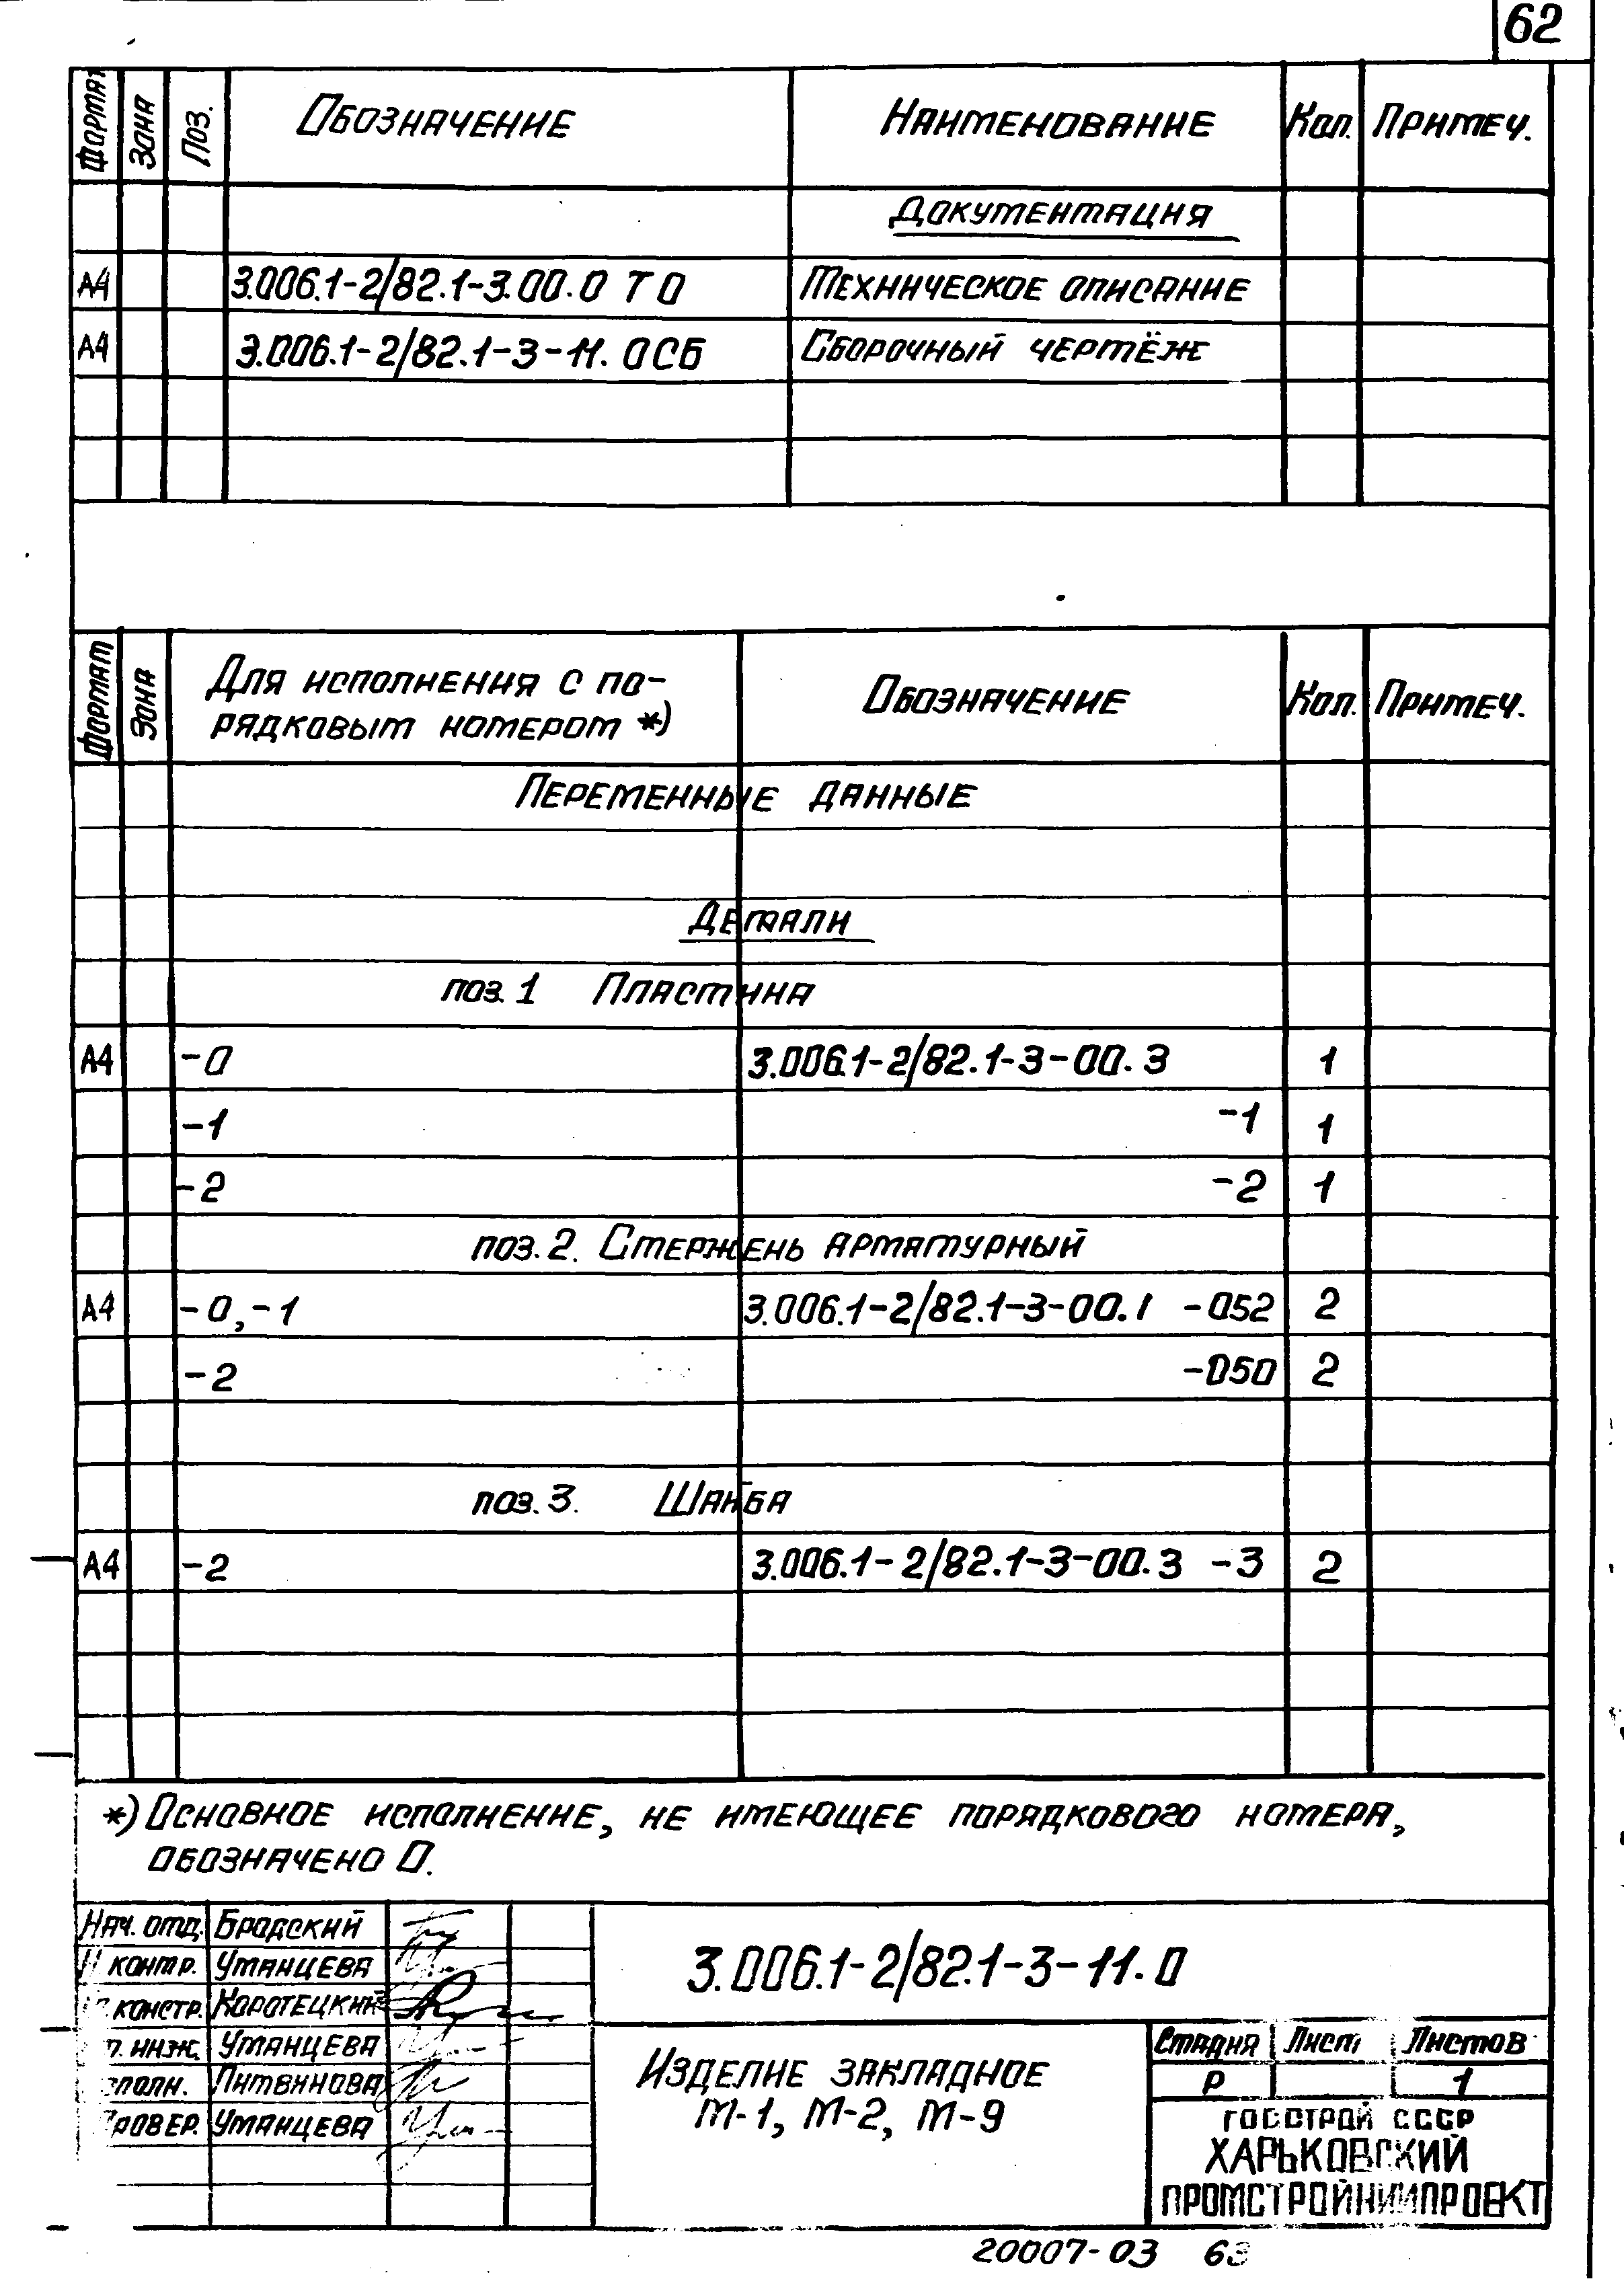 62
Формат Зона Поз. Обозначение Наименование Кол. Примеч.
Документация
А4 3.006.1-2/82.1-3.00.0 ТО Техническое описание
А4 3.006.1-2/82.1-3-11.0СБ Сборочный чертёж
Формат Зона Для исполнения с по- Обозначение Кол. Примеч.
рядковым номером *)
Переменные данные
Детали
поз. 1 Пластина
А4 -0 3.006.1-2/82.1-3-00.3 1
-1 -1 1
-2 -2 1
поз. 2. Стержень арматурный
А4 -0, -1 3.006.1-2/82.1-3-00.1 -052 2
-2 -050 2
поз. 3. Шайба
А4 -2 3.006.1-2/82.1-3-00.3 -3 2
*) Основное исполнение, не имеющее порядкового номера,
обозначено 0.
Нач. отд. Бродский
Н контр. Уманцева
констр. Коротецкий
инж. Уманцева
Литвинова
Провер. Уманцева
3.006.1-2/82.1-3-11.0
Изделие закладное
М-1, М-2, М-9
Стадия Лист Листов
Р 1
Госстрой СССР
ХАРЬКОВСКИЙ
ПРОМСТРОЙНИИПРОЕКТ
20007-03 63